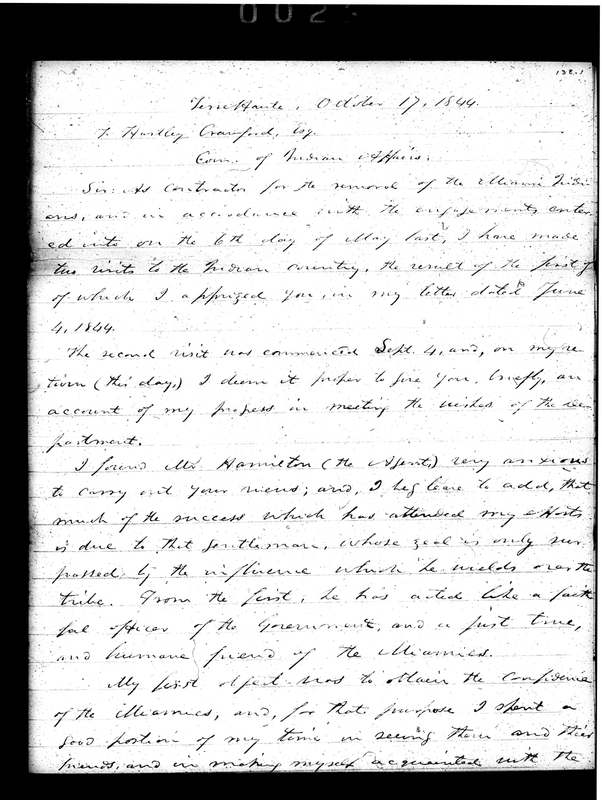 002
132-1
Terre Haute, October 17, 1844.
T. Hartley Crawford, Esq.
Com. of Indian Affairs.
Sir: As Contractor for the removal of the Miami Indi
ans, and in accordance with the engagements enter
ed into on the 6th day of May last, I have made
two visits to the Indian Country, the result of the first of
of which I apprized you, in my letter dated June
4, 1844.
The second visit was commenced Sept. 4, and, on my re
turn (this day,) I deem it proper to give you, briefly, an
account of my progress in meeting the wishes of the De
partment.
I found Mr. Hamilton (the Agent,) very anxious
to carry out your views; and, I beg leave to add, that
much of the success which has attended my efforts
is due to that gentleman, whose zeal is only sur
passed by the influence which he wields over the
tribe. From the first, he has acted like a faith
ful officer of the Government, and a just, true,
and humane friend of the Miamies.
My first object was to obtain the confidence
of the Miamies, and, for that purpose I spent a
good portion of my time in seeing them and their
friends, and in making myself acquainted with the